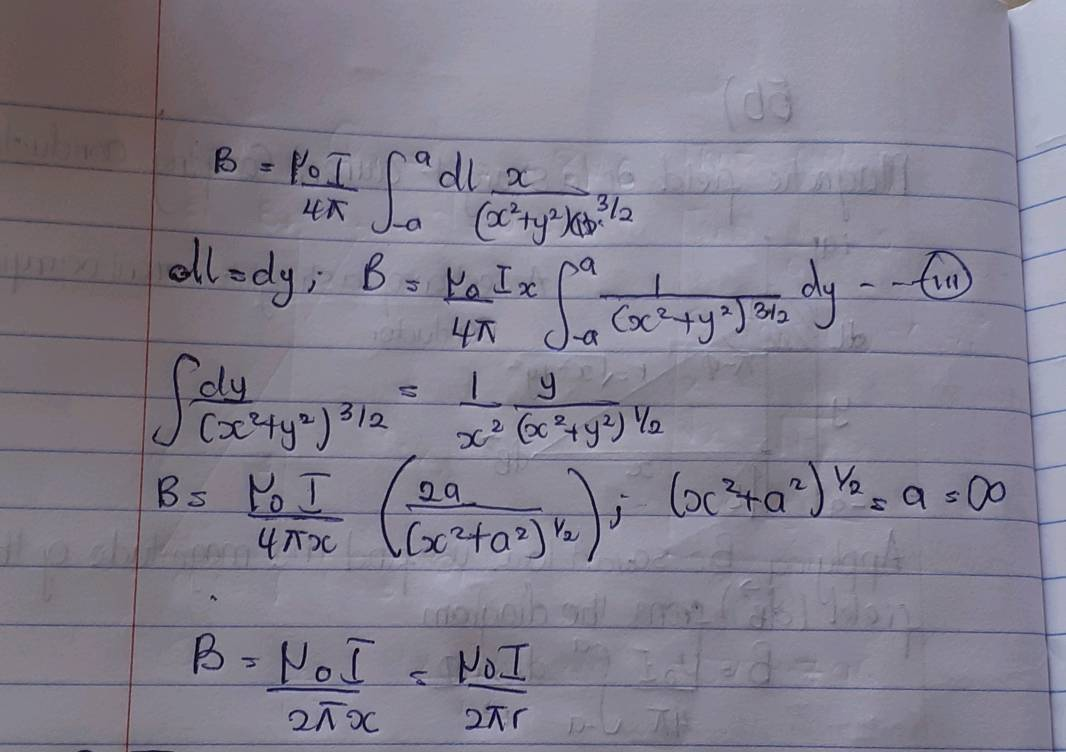 B = μ₀I/4π ∫₋ₐᵃ dl x/(x²+y²)^3/2
dl = dy; B = μ₀Ix/4π ∫₋ₐᵃ 1/(x²+y²)^3/2 dy - - - (iii)
∫ dy/(x²+y²)^3/2 = 1/x² y/(x²+y²)^1/2
B = μ₀I/4πx (2a/(x²+a²)^1/2); (x²+a²)^1/2 = a = ∞
B = μ₀I/2πx = μ₀I/2πr